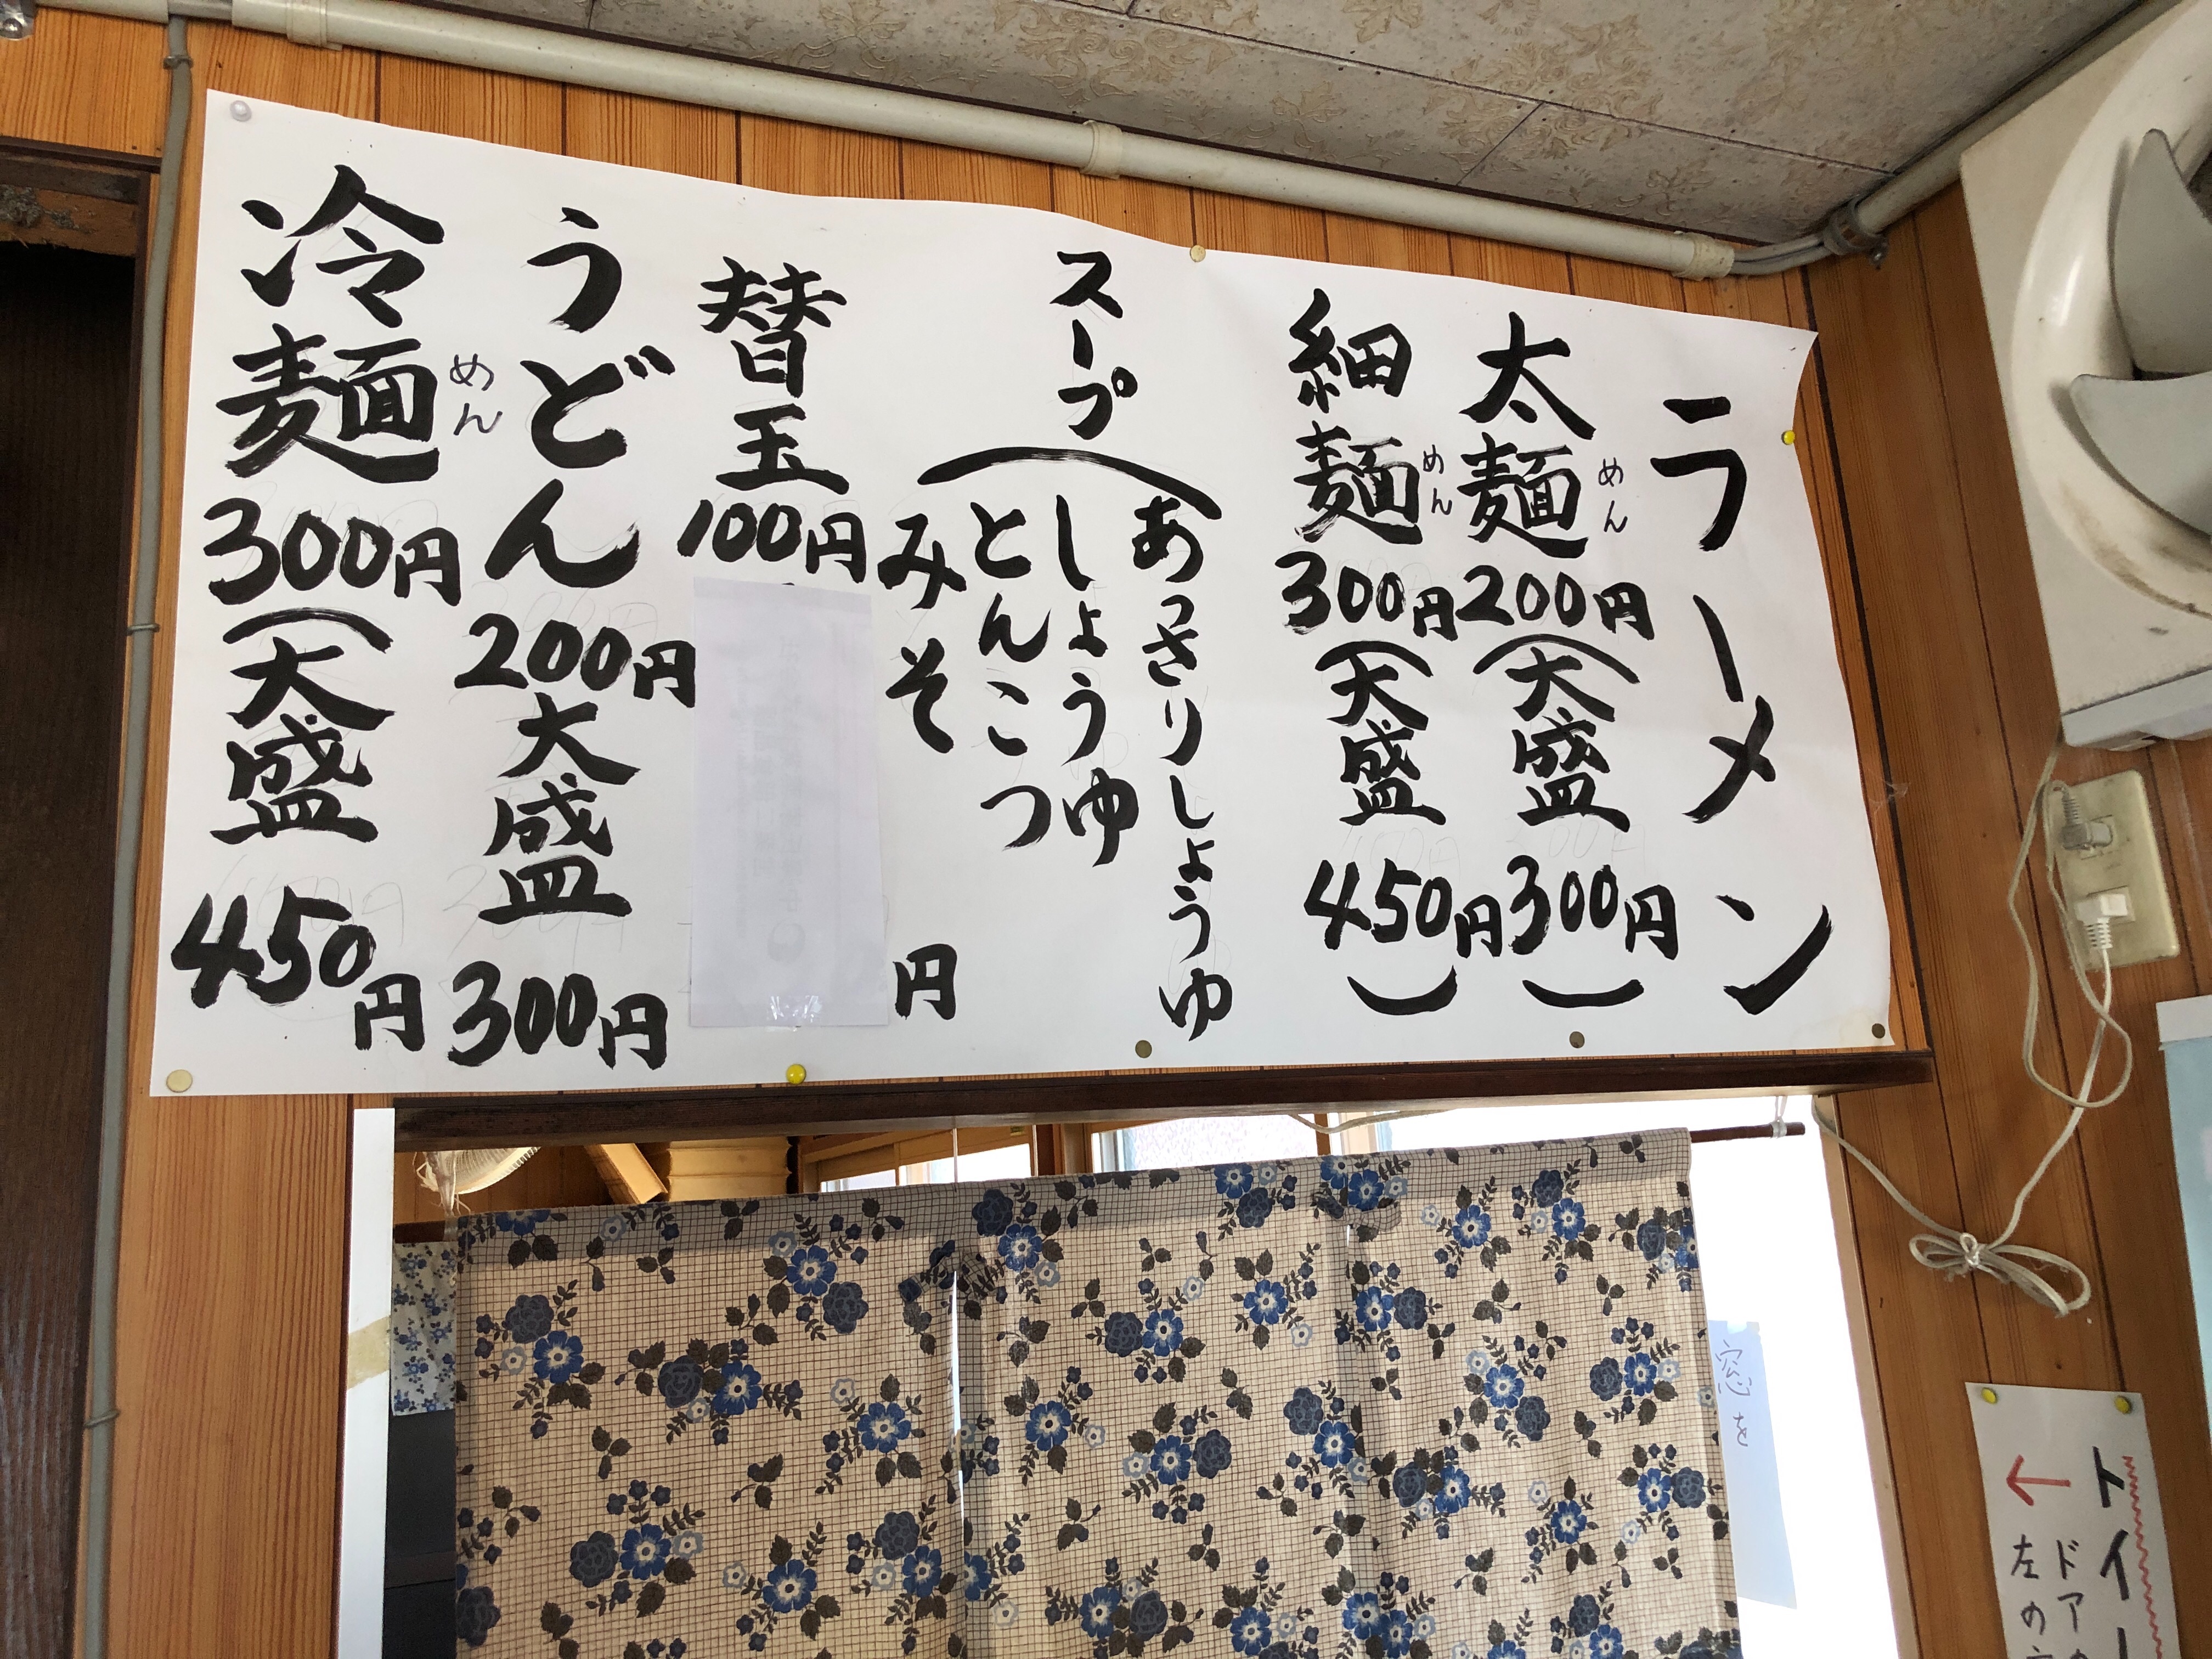 ラーメン
太麺 200円（大盛 300円）
めん
細麺 300円（大盛 450円）
めん
スープ（
あっさりしょうゆ
しょうゆ
とんこつ
みそ
円
替玉 100円
うどん 200円 大盛 300円
冷麺 300円（大盛 450円
めん
窓を
トイレ
ドア
左の
←